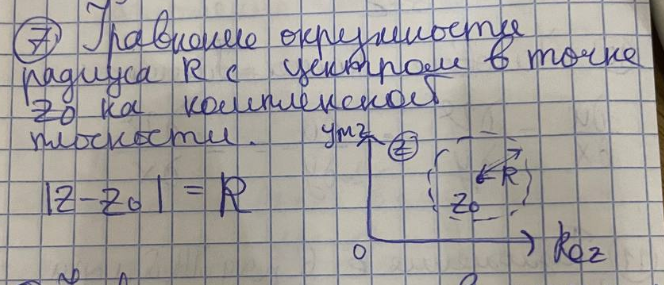 7 Уравнение окружности
радиуса R с центром в точке
z₀ на комплексной
плоскости.
Jmz
z
|z-z₀| = R
R
z₀
0
Rez